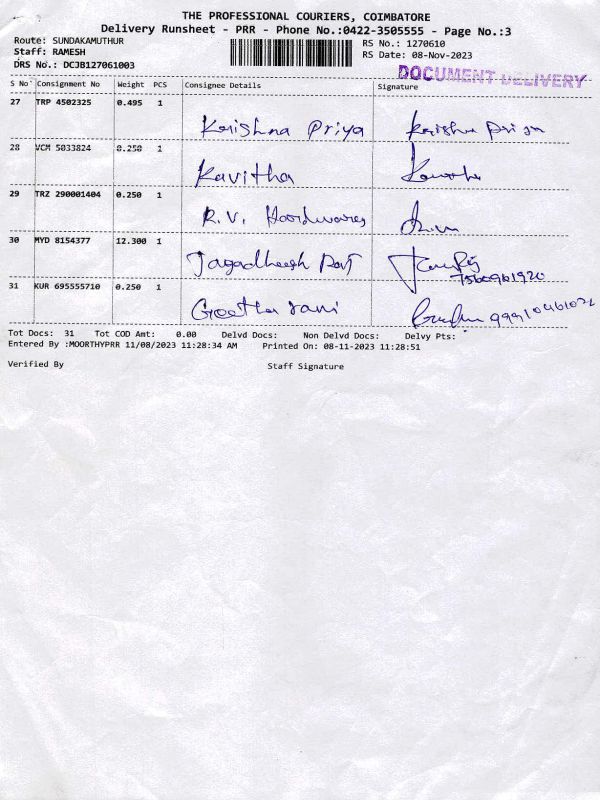 THE PROFESSIONAL COURIERS, COIMBATORE
Delivery Runsheet - PRR - Phone No.:0422-3505555 - Page No.:3
Route: SUNDAKAMUTHUR
RS No.: 1270610
Staff: RAMESH
RS Date: 08-Nov-2023
DRS No.: DCJB127061003
DOCUMENT DELIVERY
S No Consignment No Weight PCS Consignee Details Signature
27 TRP 4502325 0.495 1
Krishna Priya Krishna Priya
28 VCM 5033824 0.250 1
Kavitha
29 TRZ 290001404 0.250 1
R.V. Hardwares
30 MYD 8154377 12.300 1
Jagadheesh
31 KUR 695555710 0.250 1
Geetha rani
Tot Docs: 31 Tot COD Amt: 0.00 Delvd Docs: Non Delvd Docs: Delvy Pts:
Entered By :MOORTHYPRR 11/08/2023 11:28:34 AM Printed On: 08-11-2023 11:28:51
Verified By Staff Signature